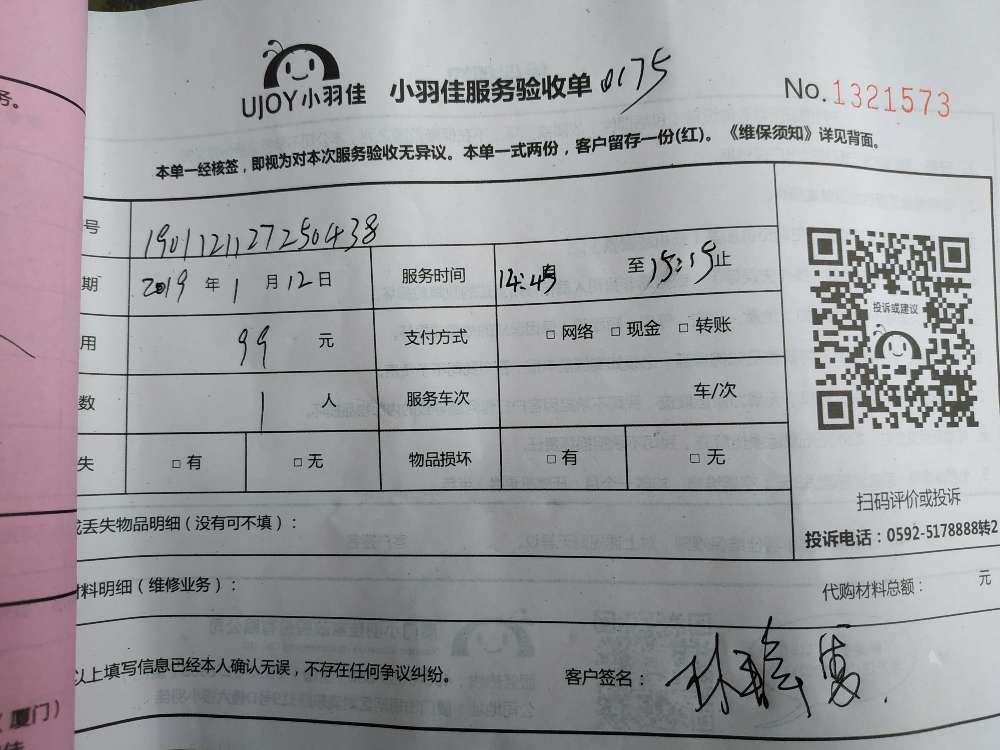 务。
UJOY小羽佳 小羽佳服务验收单 0175
No. 1321573
本单一经核签，即视为对本次服务验收无异议。本单一式两份，客户留存一份(红)。《维保须知》详见背面。
号 1901121127250438
期 2019 年 1 月 12 日 服务时间 14:45 至 15:15 止
用 99 元 支付方式 □ 网络 □ 现金 □ 转账
数 1 人 服务车次 车/次
失 □ 有 □ 无 物品损坏 □ 有 □ 无
投诉或建议
扫码评价或投诉
投诉电话：0592-5178888转2
或丢失物品明细（没有可不填）：
材料明细（维修业务）： 代购材料总额： 元
以上填写信息已经本人确认无误，不存在任何争议纠纷。 客户签名：
（厦门）